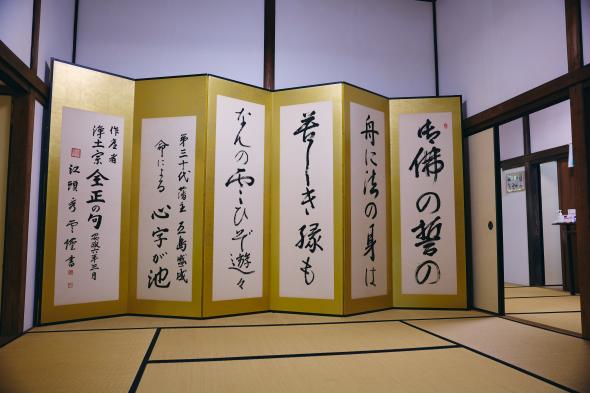 御佛の誓の
舟に法の身は
苦しき縁も
なんの ひぞ遊々
第三十代 藩主 五島盛成
命による 心字が池
作庭者
浄土宗 全正の句 安政六年三月
書